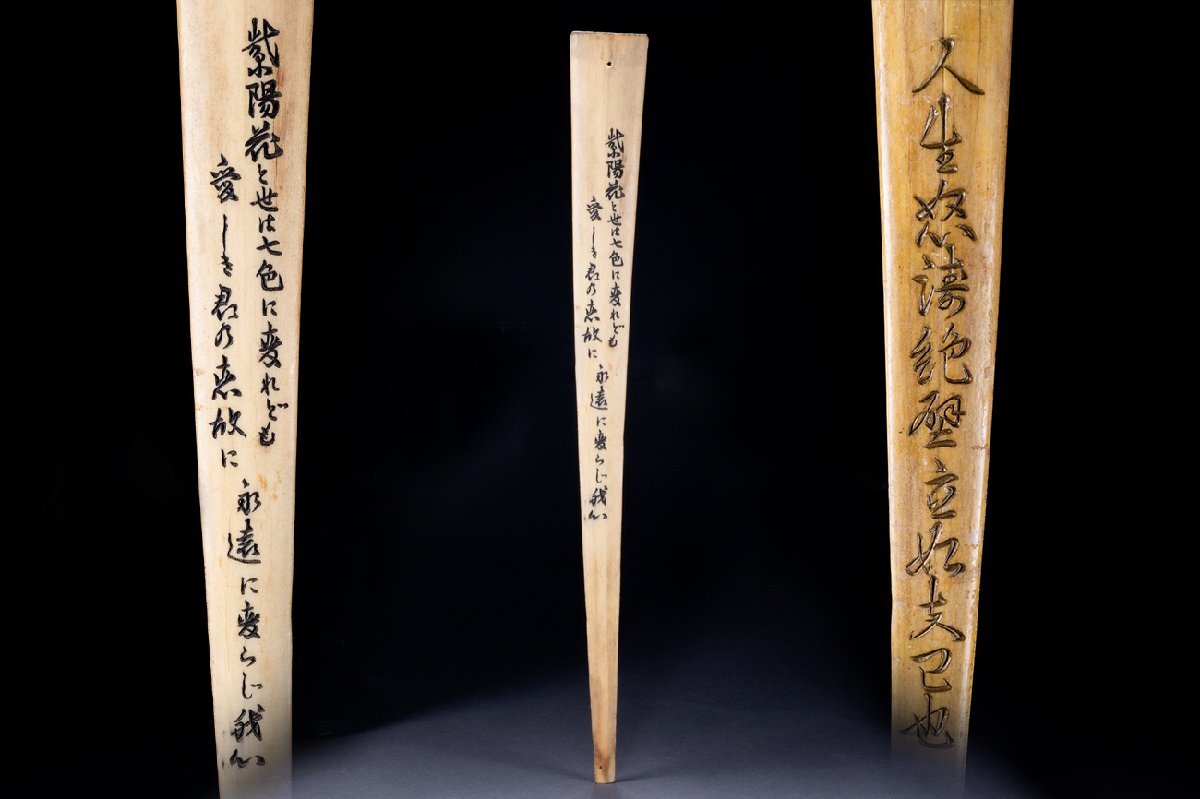 紫陽花と世は七色に変れども
愛しき君の恋故に
永遠に変らじ我心
紫陽花と世は七色に変れども
愛しき君の恋故に
永遠に変らじ我心
人生怒涛絶壁立夫已也